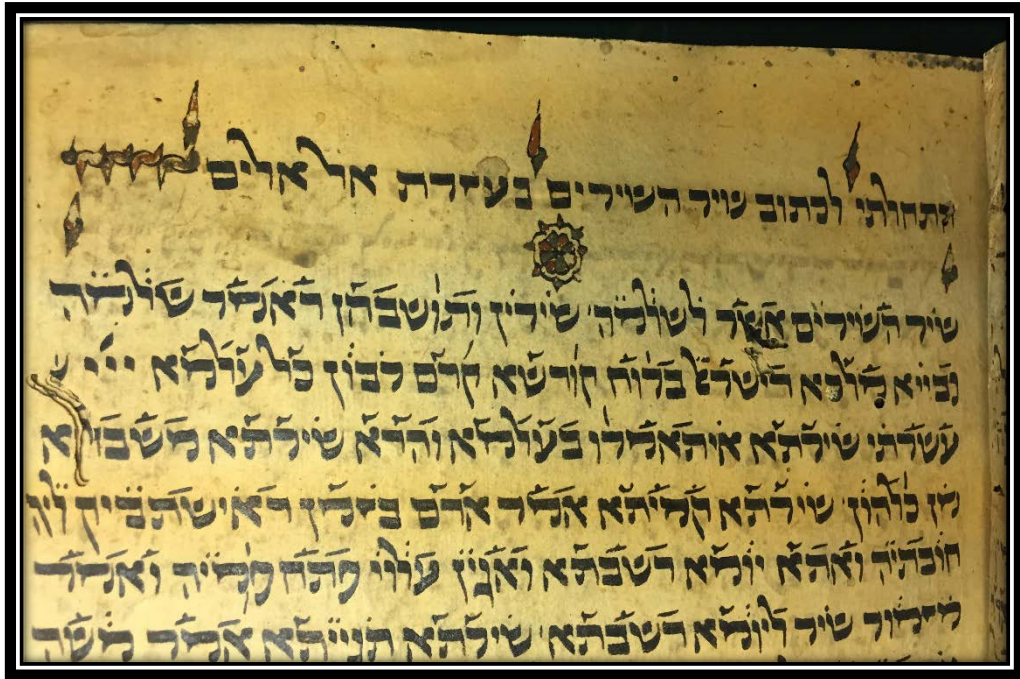 אתחולתי לכתוב שיר השירים בעזרת אל אלים
שיר השירים אשר לשלמה שירין ותושבחן דאמר שלמה
נבייא מלכא דישראל ברוח קודשא קדם רבון כל עלמא ייי ע
עשרתי שירתא איתאמרו בעלמא והדא שירתא משבחא
מן כלהון שירתא קמיתא אמר אדם בזמן דאישתביק ליה
חובתיה ואתא יומא דשבתא ואגין עלוי פתח פמיה ואמר
מזמור שיר ליומא דשבתא שירתא תנייתא אמר משה